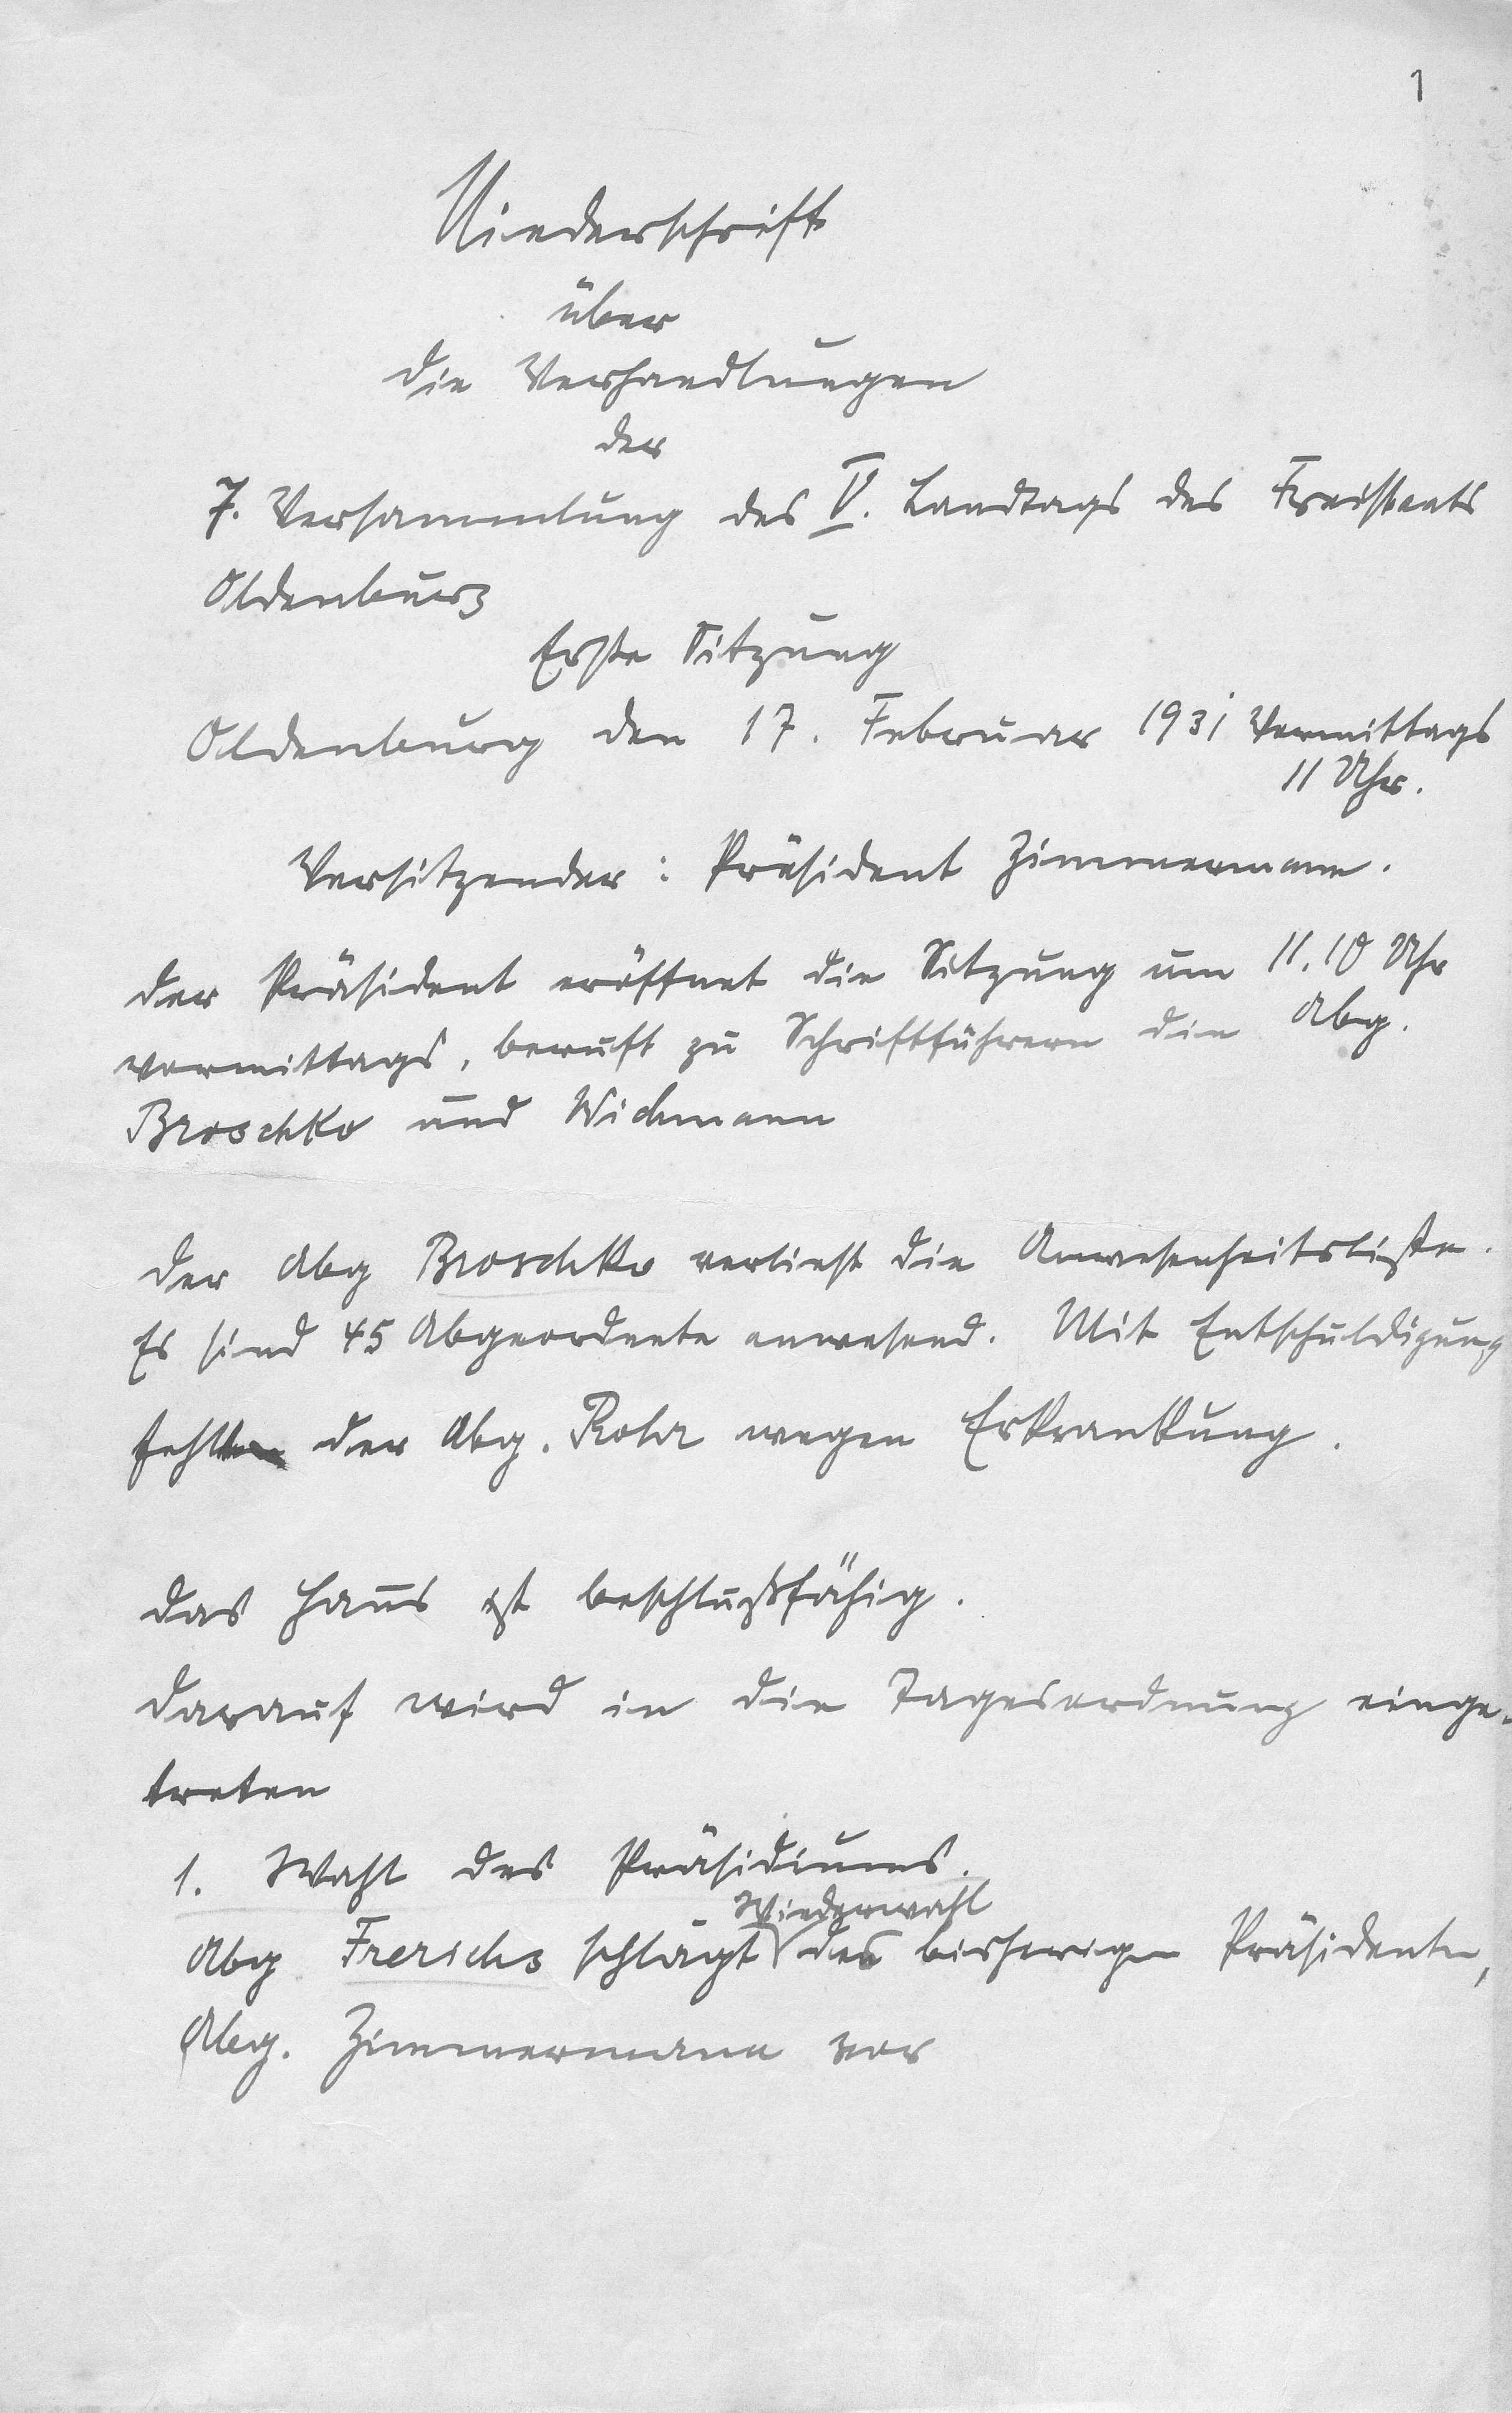 1
Niederschrift
über
die Verhandlungen
der
7. Versammlung des V. Landtags des Freistaats
Oldenburg
Erste Sitzung
Oldenburg den 17. Februar 1931 Vormittags
11 Uhr.
Vorsitzender: Präsident Zimmermann.
Der Präsident eröffnet die Sitzung um 11.10 Uhr
vormittags, beruft zu Schriftführern die Abg.
Broschko und Wichmann
Der Abg Broschko verliest die Anwesenheitsliste.
Es sind 45 Abgeordnete anwesend. Mit Entschuldigung
fehlt der Abg. Rohr wegen Erkrankung.
Das Haus ist beschlußfähig.
Darauf wird in die Tagesordnung einge-
treten
1. Wahl des Präsidiums.
Wiederwahl
Abg Frerichs schlägt des bisherigen Präsidenten,
Abg. Zimmermann vor